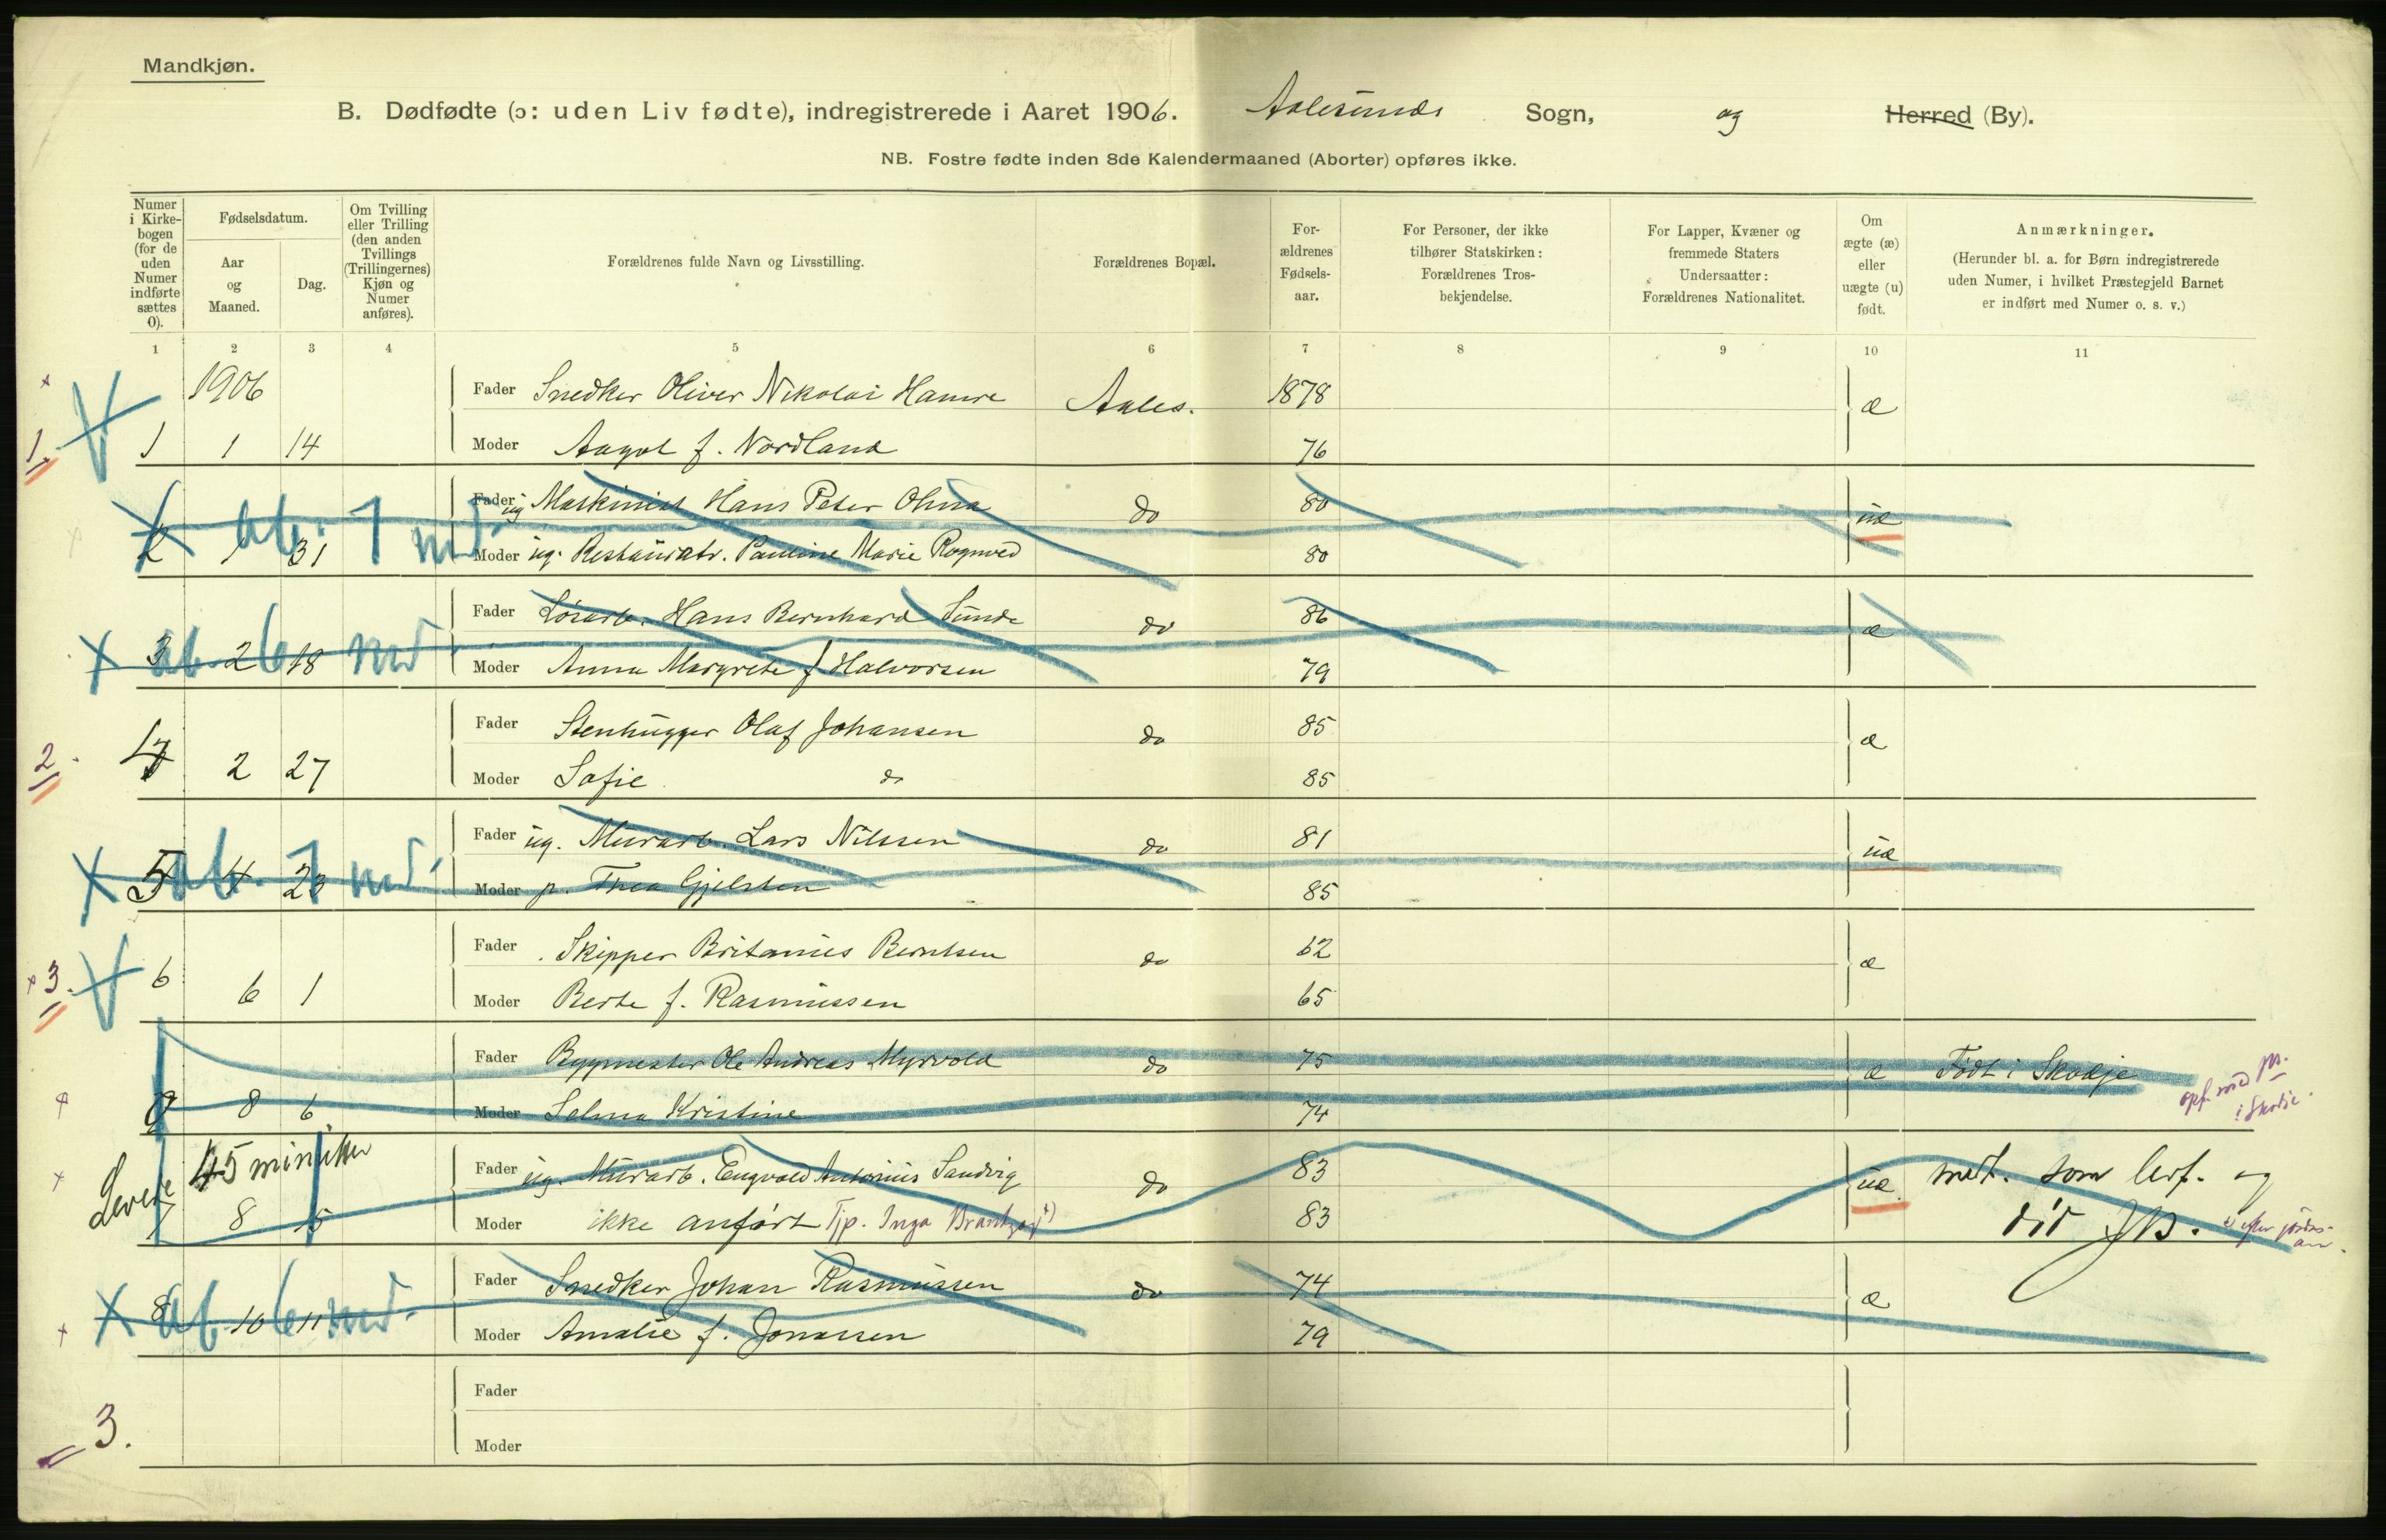 Mandkjøn.
B. Dødfødte (ɔ: uden Liv fødte), indregistrerede i Aaret 1906. Aalesunds Sogn, og Herred (By).
NB. Fostre fødte inden 8de Kalendermaaned (Aborter) opføres ikke.
Numer i Kirke-bogen (for de uden Numer indførte sættes 0).
Fødselsdatum.
Aar og Maaned.
Dag.
Om Tvilling eller Trilling (den anden Tvillings (Trillingernes) Kjøn og Numer anføres).
Forældrenes fulde Navn og Livsstilling.
Forældrenes Bopæl.
For-ældrenes Fødsels-aar.
For Personer, der ikke tilhører Statskirken: Forældrenes Tros-bekjendelse.
For Lapper, Kvæner og fremmede Staters Undersaatter: Forældrenes Nationalitet.
Om ægte (æ) eller uægte (u) født.
Anmærkninger. (Herunder bl. a. for Børn indregistrerede uden Numer, i hvilket Præstegjeld Barnet er indført med Numer o. s. v.)
1 2 3 4 5 6 7 8 9 10 11
1906 Fader Snedker Oliver Nikolai Hamre Aales. 1878 æ
1. 1 1 14 Moder Aagot f. Nordland 76
Fader ug Maskinist Hans Peter Ohma do 80 uæ
2 1 31 ab. 7 md. Moder ug. Restauratr. Pauline Marie Rognved 80
Fader Løsarb. Hans Bernhard Sunde do 86 æ
3 2 18 ab. 6 md Moder Anna Margrete f Halvorsen 79
Fader Stenhugger Olaf Johansen do 85 æ
2. 4 2 27 Moder Sofie do 85
Fader ug. Murarb. Lars Nilssen do 81 uæ
5 4 23 ab. 7 md. Moder p. Thea Gjelsten 85
Fader Skipper Britanius Berntsen do 62 æ
3. 6 6 1 Moder Berte f. Rasmussen 65
Fader Bygmester Ole Andreas Myrvold do 75 æ Født i Skodje
0 8 6 Moder Selma Kristine 74 opf. med
i Skodje.
Levede 45 minutter Fader ug. Murarb. Engvald Antonius Sandvig do 83 uæ medt. som levf. og
7 8 15 Moder ikke anført Tjp. Inga 83 død
Fader Snedker Johan Rasmussen do 74 æ
8 10 11 ab. 6 md. Moder Amalie f. Jonassen 79
Fader
3. Moder